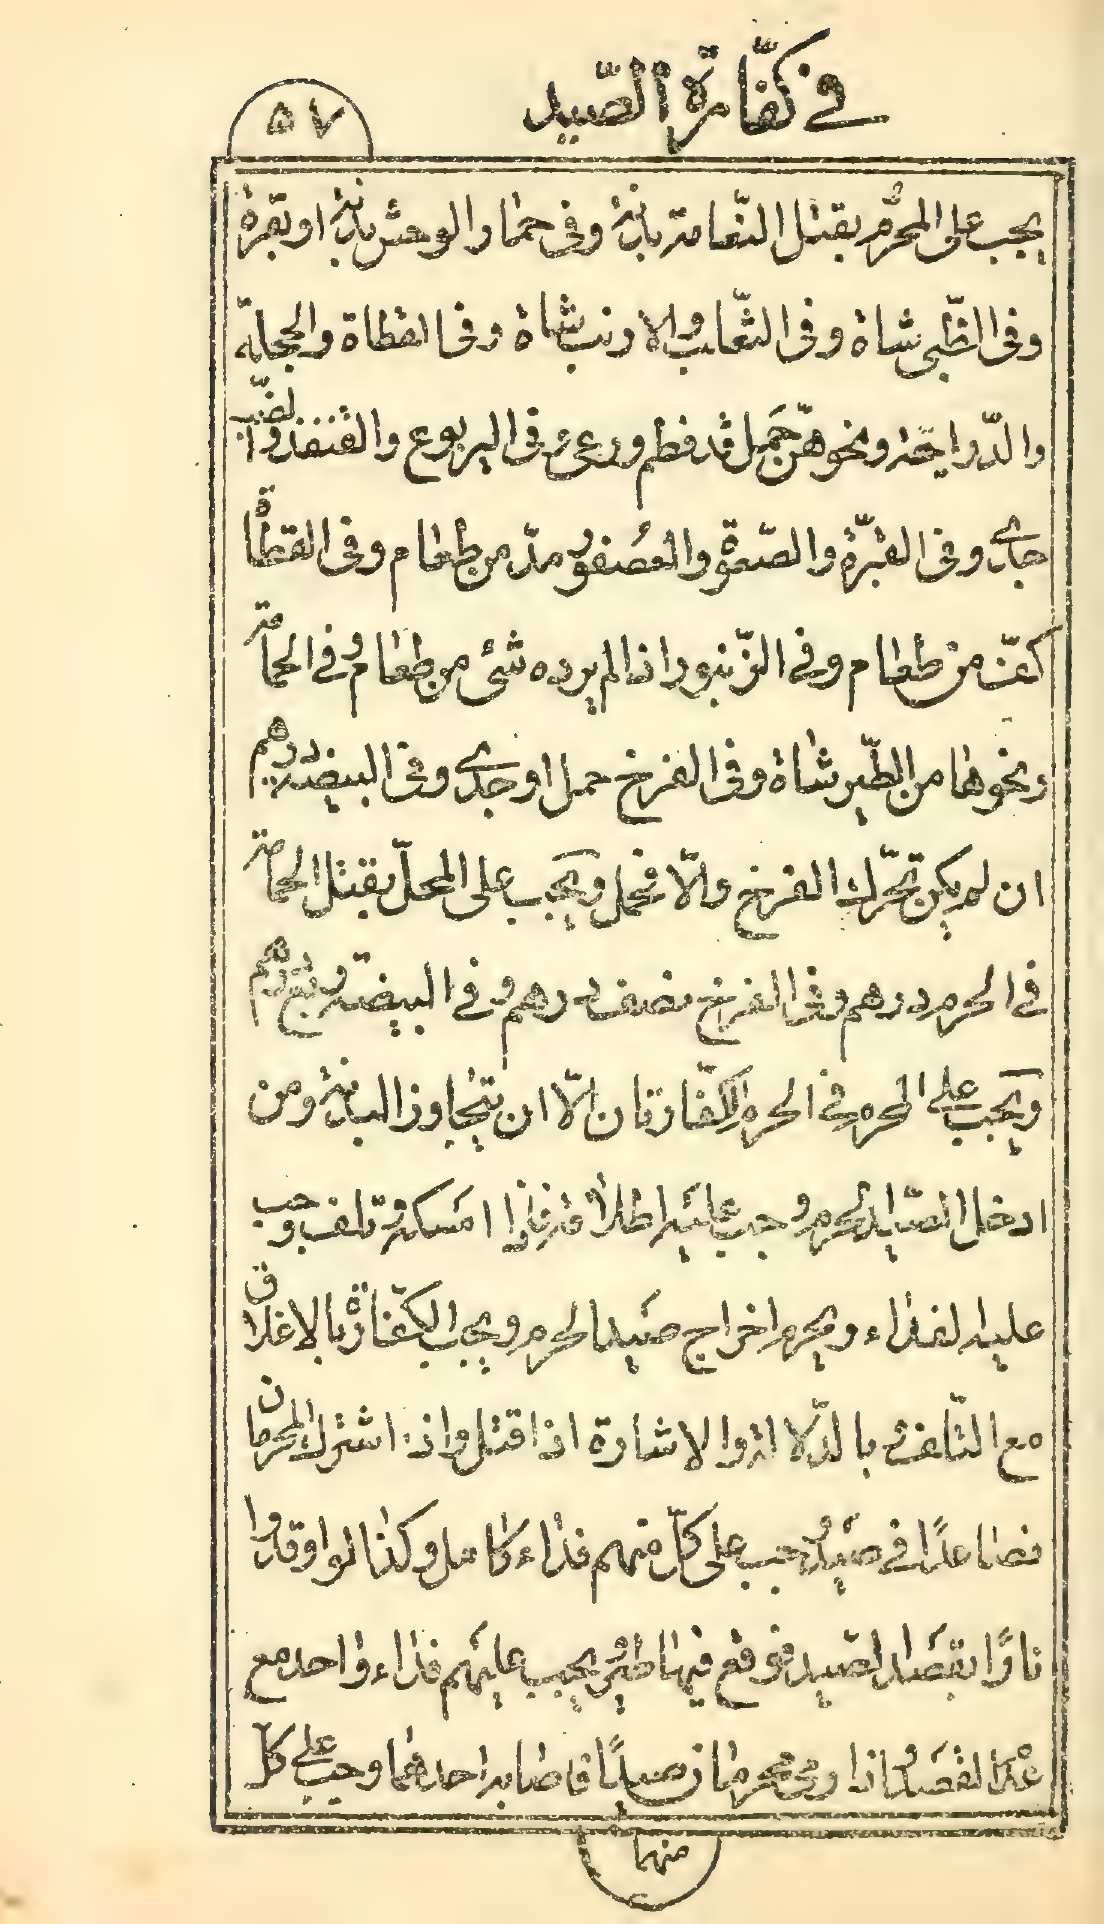 في كفّارة الصّيد
٥٧
يجب على المحرم بقتل النّعامة بدنة وفى حمار الوحش بدنة او بقرة
وفى الظّبى شاة وفى الثّعلب والارنب شاة وفى القطاة والحجلة
والدّرّاجة ونحوهنّ حمل قد فطم ورعى وفى اليربوع والقنفذ والضّبّ
جدى وفى القبّرة والصّعوة والعصفور مدّ من طعام وفى القطاة
كفّ من طعام وفي الزّنبور اذا لم يرده شئ من طعام وفي الحمامة
ونحوها من الطّير شاة وفى الفرخ حمل او جدى وفى البيضة درهم
ان لم يكن تحرّك الفرخ والّا فحمل ويجب على المحلّ بقتل الحمامة
في الحرم درهم وفى الفرخ نصف درهم وفي البيضة ربع درهم
ويجب على المحرم في الحرم الكفّارتان الّا ان تتجاوز البدنة ومن
ادخل الصّيد الحرم وجب عليه اطلاقه فاذا امسكه وتلف وجب
عليه الفداء ويحرم اخراج صيد الحرم ويجب الكفّارة بالاغلاق
مع التّلف وبالدّلالة والاشارة اذا قتل واذا اشترك المحرمان
فصاعدًا في صيد وجب على كلّ منهم فداء كامل وكذا لو اوقدوا
نارًا بقصد الصّيد فوقع فيها طير ويجب عليهم فداء واحد مع
عدم القصد واذا رمى محرمان صيدًا فاصابه احدهما وجب على كلّ
منهما